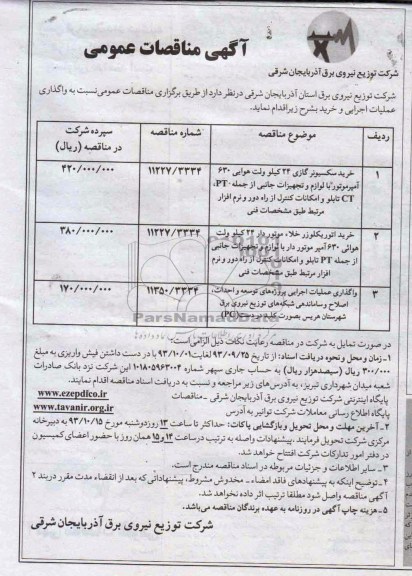 آگهی مناقصات عمومی
شرکت توزیع نیروی برق آذربایجان شرقی
شرکت توزیع نیروی برق استان آذربایجان شرقی درنظر دارد از طریق برگزاری مناقصات عمومی نسبت به واگذاری
عملیات اجرایی و خرید بشرح زیر اقدام نماید.
ردیف موضوع مناقصه شماره مناقصه سپرده شرکت در مناقصه (ریال)
۱ خرید سکسیونر گازی ۲۴ کیلو ولت هوایی ۶۳۰ ۱۱۲۲۷/۳۳۳۴ ۴۲۰/۰۰۰/۰۰۰
آمپرموتور با لوازم و تجهیزات جانبی از جمله PT،
CT تابلو و امکانات کنترل از راه دور و نرم افزار
مرتبط طبق مشخصات فنی
۲ خرید اتوریکلوزر خلاء موتور دار ۲۴ کیلو ولت ۱۱۲۲۷/۳۳۳۴ ۳۸۰/۰۰۰/۰۰۰
هوائی ۶۳۰ آمپر موتور دار با لوازم و تجهیزات جانبی
از جمله PT تابلو و امکانات کنترل از راه دور و نرم
افزار مرتبط طبق مشخصات فنی
۳ واگذاری عملیات اجرایی پروژه‌های توسعه و احداث، ۱۱۳۵۰/۳۳۳۴ ۱۷۰/۰۰۰/۰۰۰
اصلاح و ساماندهی شبکه‌های توزیع نیروی برق
شهرستان هریس بصورت کلید در دست (PC)
ParsNamadData
در صورت تمایل به شرکت در مناقصه رعایت نکات ذیل الزامی است:
۱- زمان و محل و نحوه دریافت اسناد: از تاریخ ۹۳/۰۹/۲۵ لغایت ۹۳/۱۰/۰۱ با در دست داشتن فیش واریزی به مبلغ
۳۰۰/۰۰۰ ریال (سیصدهزار ریال) به حساب جاری سپهر شماره ۰۱۰۱۸۰۵۹۶۳۰۰۴ این شرکت نزد بانک صادرات
شعبه میدان شهرداری تبریز، به آدرس‌های زیر مراجعه و نسبت به دریافت اسناد مناقصه اقدام نمایند.
پایگاه اینترنتی شرکت توزیع نیروی برق آذربایجان شرقی - مناقصات www.ezepdico.ir
پایگاه اطلاع رسانی معاملات شرکت توانیر به آدرس www.tavanir.org.ir
۲- آخرین مهلت و محل تحویل و بازگشایی پاکات: حداکثر تا ساعت ۱۳ روز دوشنبه مورخ ۹۳/۱۰/۱۵ به دبیرخانه
مرکزی شرکت تحویل فرمایند. پیشنهادات واصله به ترتیب در ساعت ۱۴ و ۱۵ همان روز با حضور اعضای کمیسیون
در دفتر امور تدارکات شرکت افتتاح خواهد شد.
۳- سایر اطلاعات و جزئیات مربوطه در اسناد مناقصه مندرج است.
۴- توضیح اینکه به پیشنهادهای فاقد امضاء - مخدوش مشروط، پیشنهاداتی که بعد از انقضاء مدت مقرر در بند ۲
آگهی مناقصه واصل شود مطلقا ترتیب اثر داده نخواهد شد.
۵- هزینه چاپ آگهی در روزنامه به عهده برندگان مناقصه می‌باشد.
شرکت توزیع نیروی برق آذربایجان شرقی